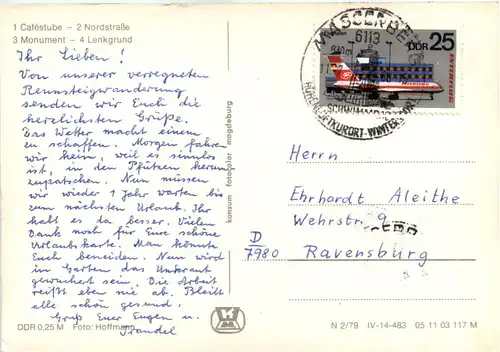 1 Caféstube – 2 Nordstraße
3 Monument – 4 Lenkgrund
Ihr Lieben!
Von unserer verregneten
Rennsteigwanderung
senden wir Euch die
herzlichsten Grüße.
Das Wetter macht einem
zu schaffen. Morgen fahren
wir heim, weil es sinnlos
ist, in den Pfützen herum-
zupatschen. Nun müssen
wir wieder 1 Jahr warten bis
zum nächsten Urlaub. Ihr
habt es da besser. Vielen
Dank noch für Eure schöne
Urlaubskarte. Man könnte
Euch beneiden. Nun wird
im Garten das Unkraut
gewuchert sein. Die Arbeit
reißt eben nie ab. Bleibt
alle schön gesund.
Gruß Euer Eugen u.
Traudel
DDR 0,25 M Foto: Hoffmann
konsum fotocolor magdeburg
MASSERBERG
6113
830m
HÖHENLUFTKURORT-WINTERSPORT
DDR 25
INTERFLUG
Herrn
Ehrhardt Aleithe
Wehrstraße 9
D
7980 Ravensburg
N 2/79 IV-14-483 05 11 03 117 M